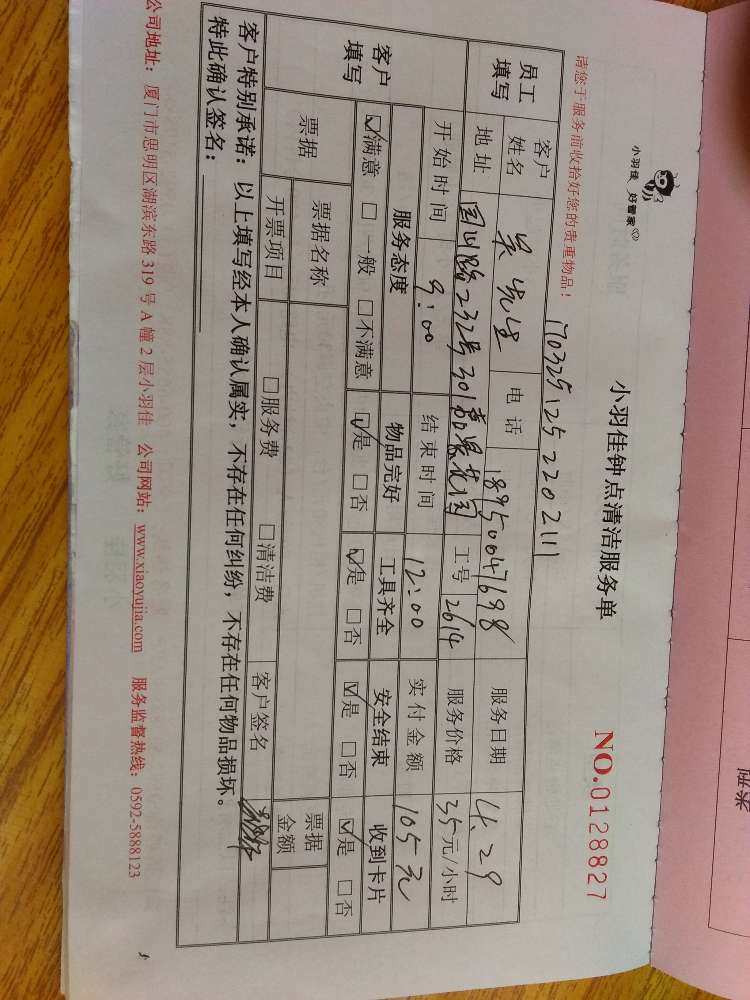 小羽佳 好管家
小羽佳钟点清洁服务单
NO.0128827
请您于服务前收拾好您的贵重物品！
170325125220211
员工填写 客户姓名 吴先生 电话 18950047698 服务日期 4.29
地址 232号301 工号 2614 服务价格 35元/小时
开始时间 9:00 结束时间 12:00 实付金额 105元
客户填写 服务态度 物品完好 工具齐全 安全结束 收到卡片
☑满意 □一般 □不满意 ☑是 □否 ☑是 □否 ☑是 □否 ☑是 □否
票据 票据名称 票据金额
开票项目 □服务费 □清洁费 客户签名
客户特别承诺：以上填写经本人确认属实，不存在任何纠纷，不存在任何物品损坏。
特此确认签名：
公司地址：厦门市思明区湖滨东路319号A幢2层小羽佳 公司网站：www.xiaoyujia.com 服务监督热线：0592-5888123